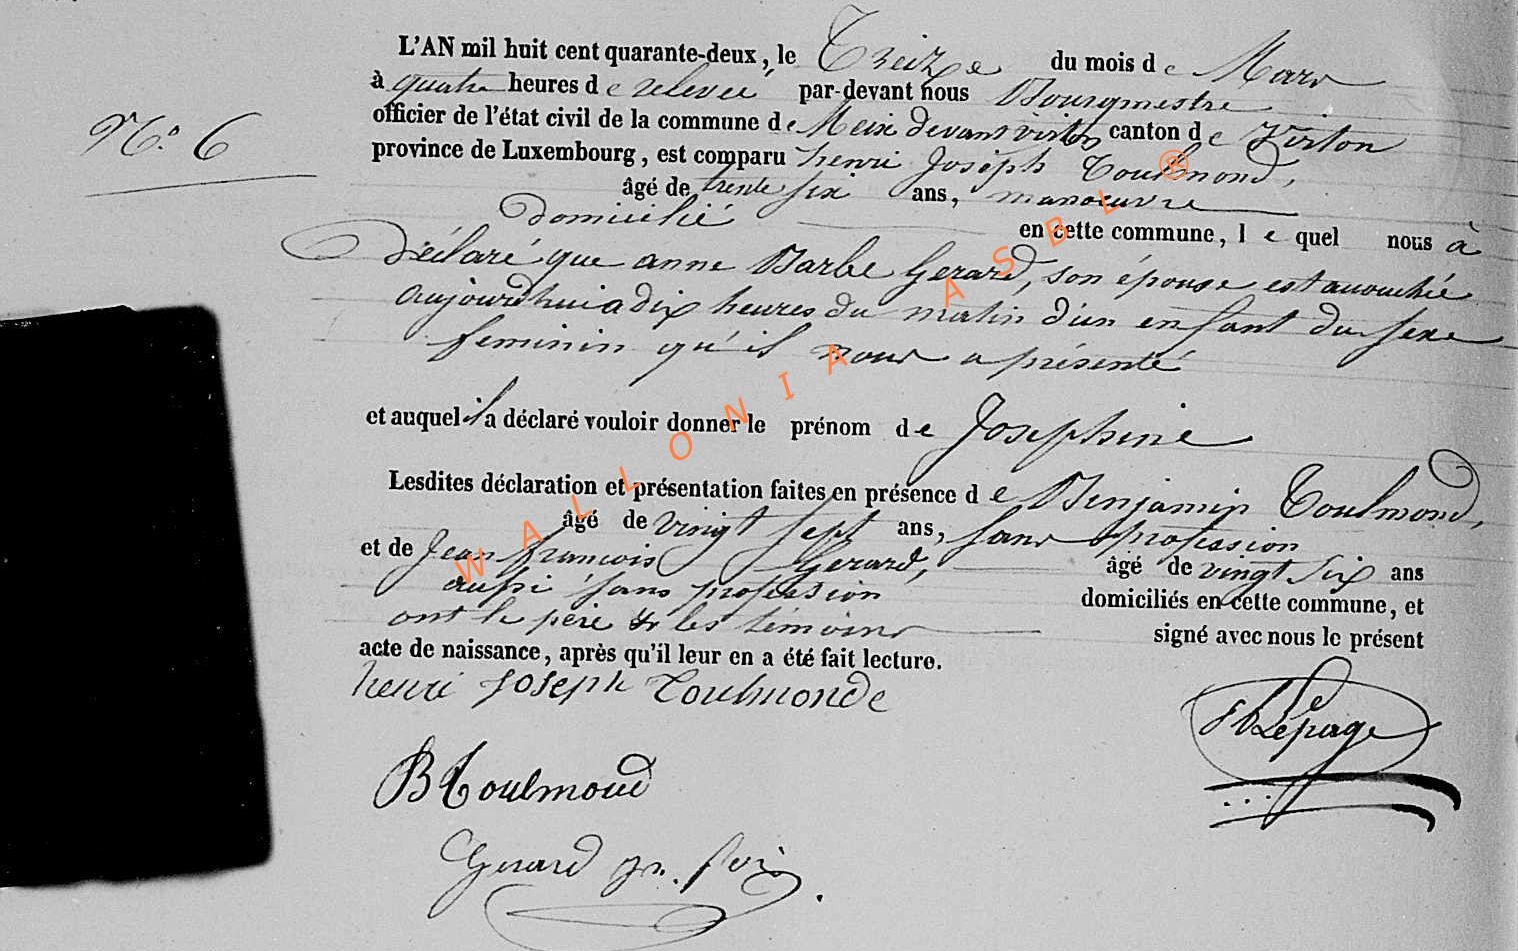 L'AN mil huit cent quarante-deux, le Treize du mois de Mars
à quatre heures de relevée par-devant nous Bourgmestre
officier de l'état civil de la commune de Meix devant virton canton de Virton
N.º 6
province de Luxembourg, est comparu henri Joseph Toulmond,
âgé de trente six ans, manoeuvre
Domicilié en cette commune, lequel nous à
Déclaré que anne Barbe Gerard, son épouse est accouchée
aujourdhui a dix heures du matin d'un enfant du sexe
feminin qu'il nous a présenté
et auquel il a déclaré vouloir donner le prénom de Josephine
Lesdites déclaration et présentation faites en présence de Benjamin Toulmond,
âgé de vingt sept ans, sans profession
et de Jean françois Gerard, âgé de vingt six ans
aussi sans profession domiciliés en cette commune, et
ont le père & les témoins signé avec nous le présent
acte de naissance, après qu'il leur en a été fait lecture.
henri Joseph Toulmonde
Lepage
B Toulmond
Gerard jn. foi.
WALLONIA ASBL ®